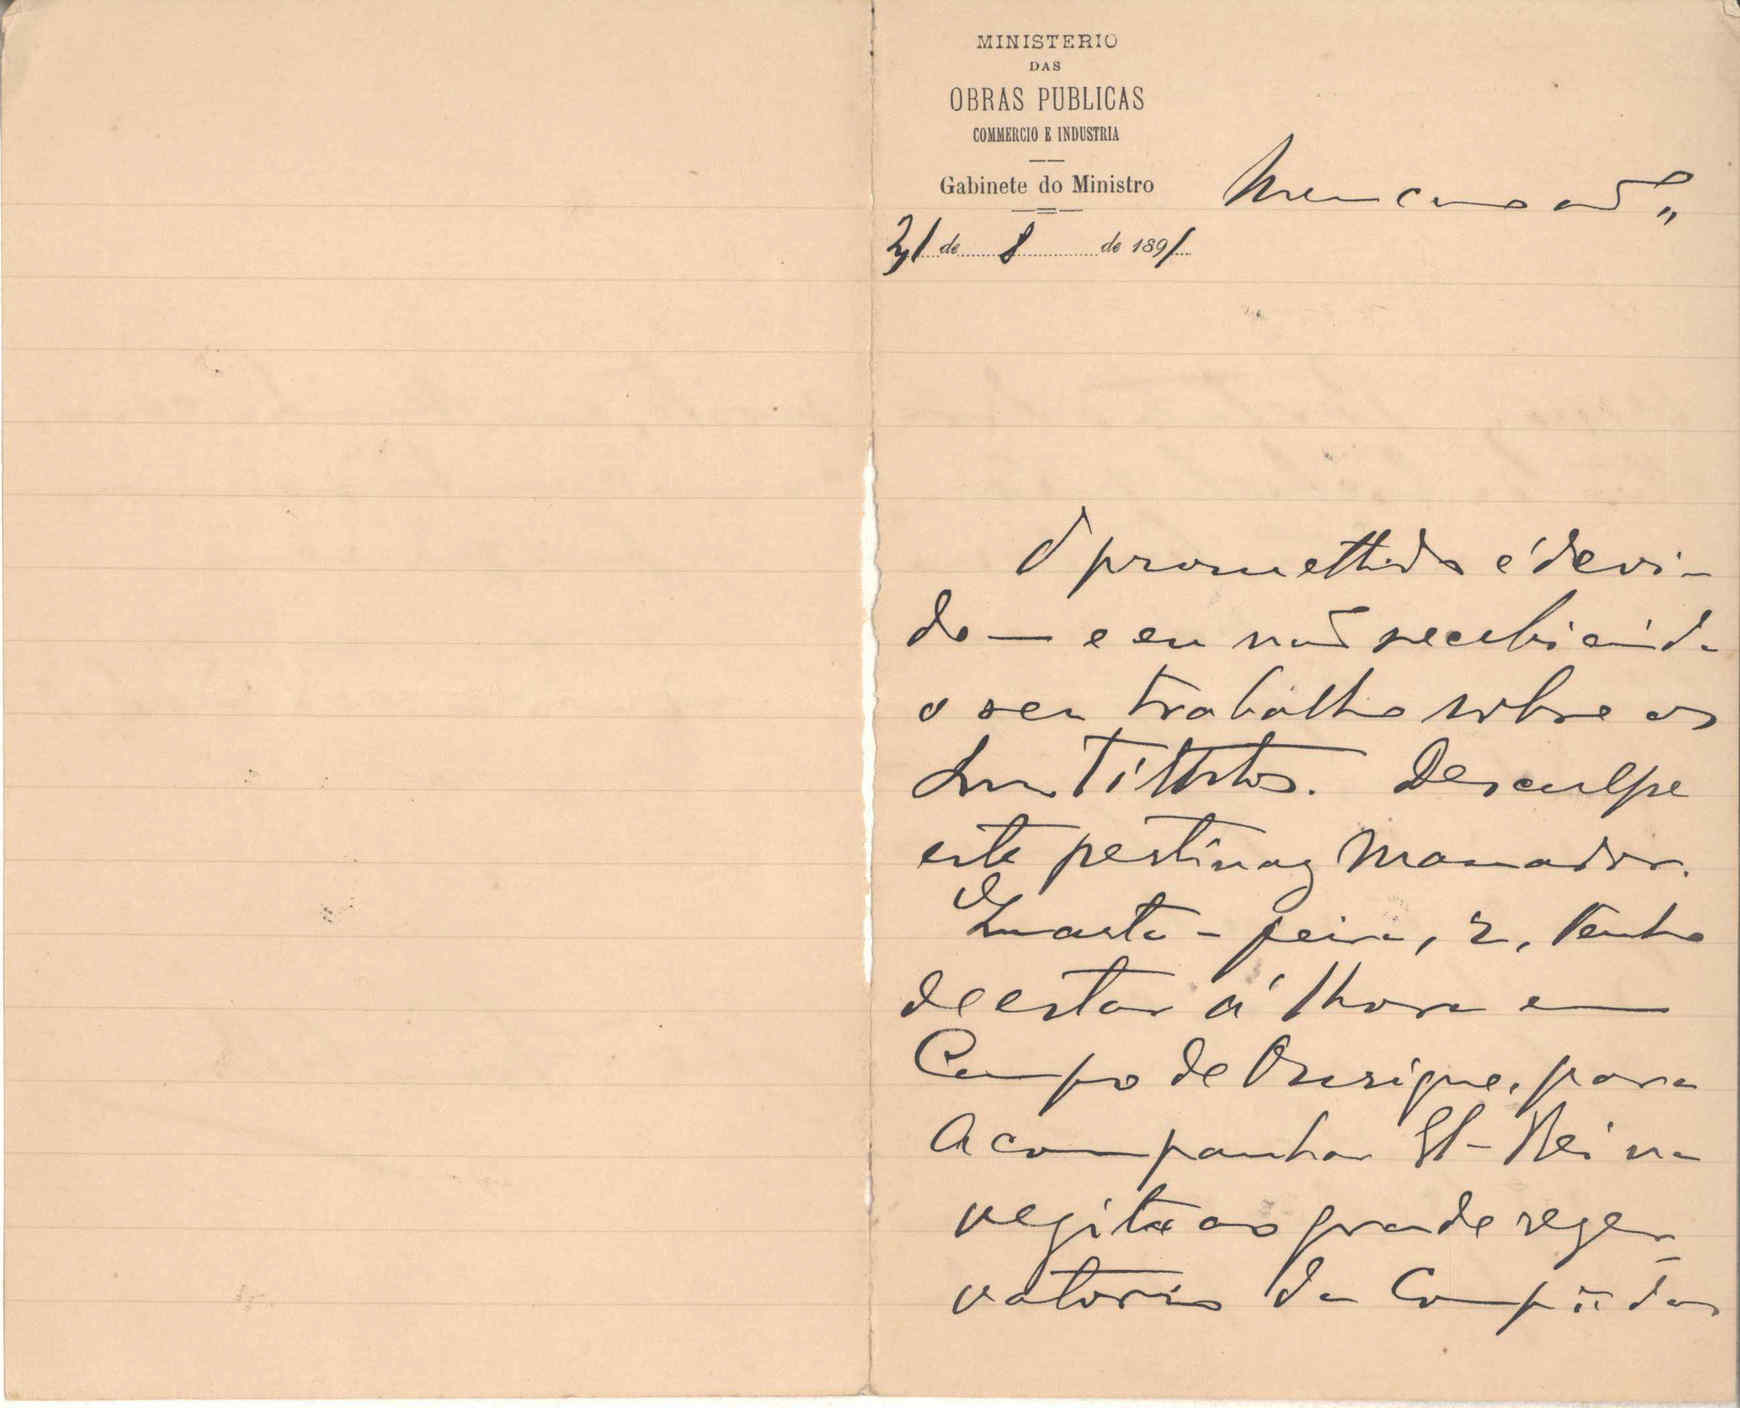 MINISTERIO
DAS
OBRAS PUBLICAS
COMMERCIO E INDUSTRIA
Gabinete do Ministro
Meu caro
31 de 8 de 1891
O promettido é devi-
do — e eu não recebi ainda
o seu trabalho sobre os
Institutos. Desculpe
este pertinaz massador.
Quarta-feira, 2, tenho
de estar á 1 hora em
Campo de Ourique, para
acompanhar El-Rei na
vezita ao grande rezer-
vatorio da Comp.ª das